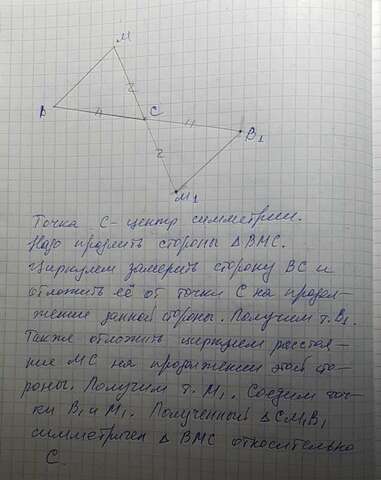 M
2
B
C
4
4
B1
2
M1
Точка C - центр симметрии.
Надо продлить стороны Δ BMC.
Циркулем замерить сторону BC и
отложить её от точки C на продол-
жение данной стороны. Получим т. B1.
Также отложить циркулем расстоя-
ние MC на продолжении этой сто-
роны. Получим т. M1. Соедим точ-
ки B1 и M1. Полученный Δ CM1B1
симметричен Δ BMC относительно
C.